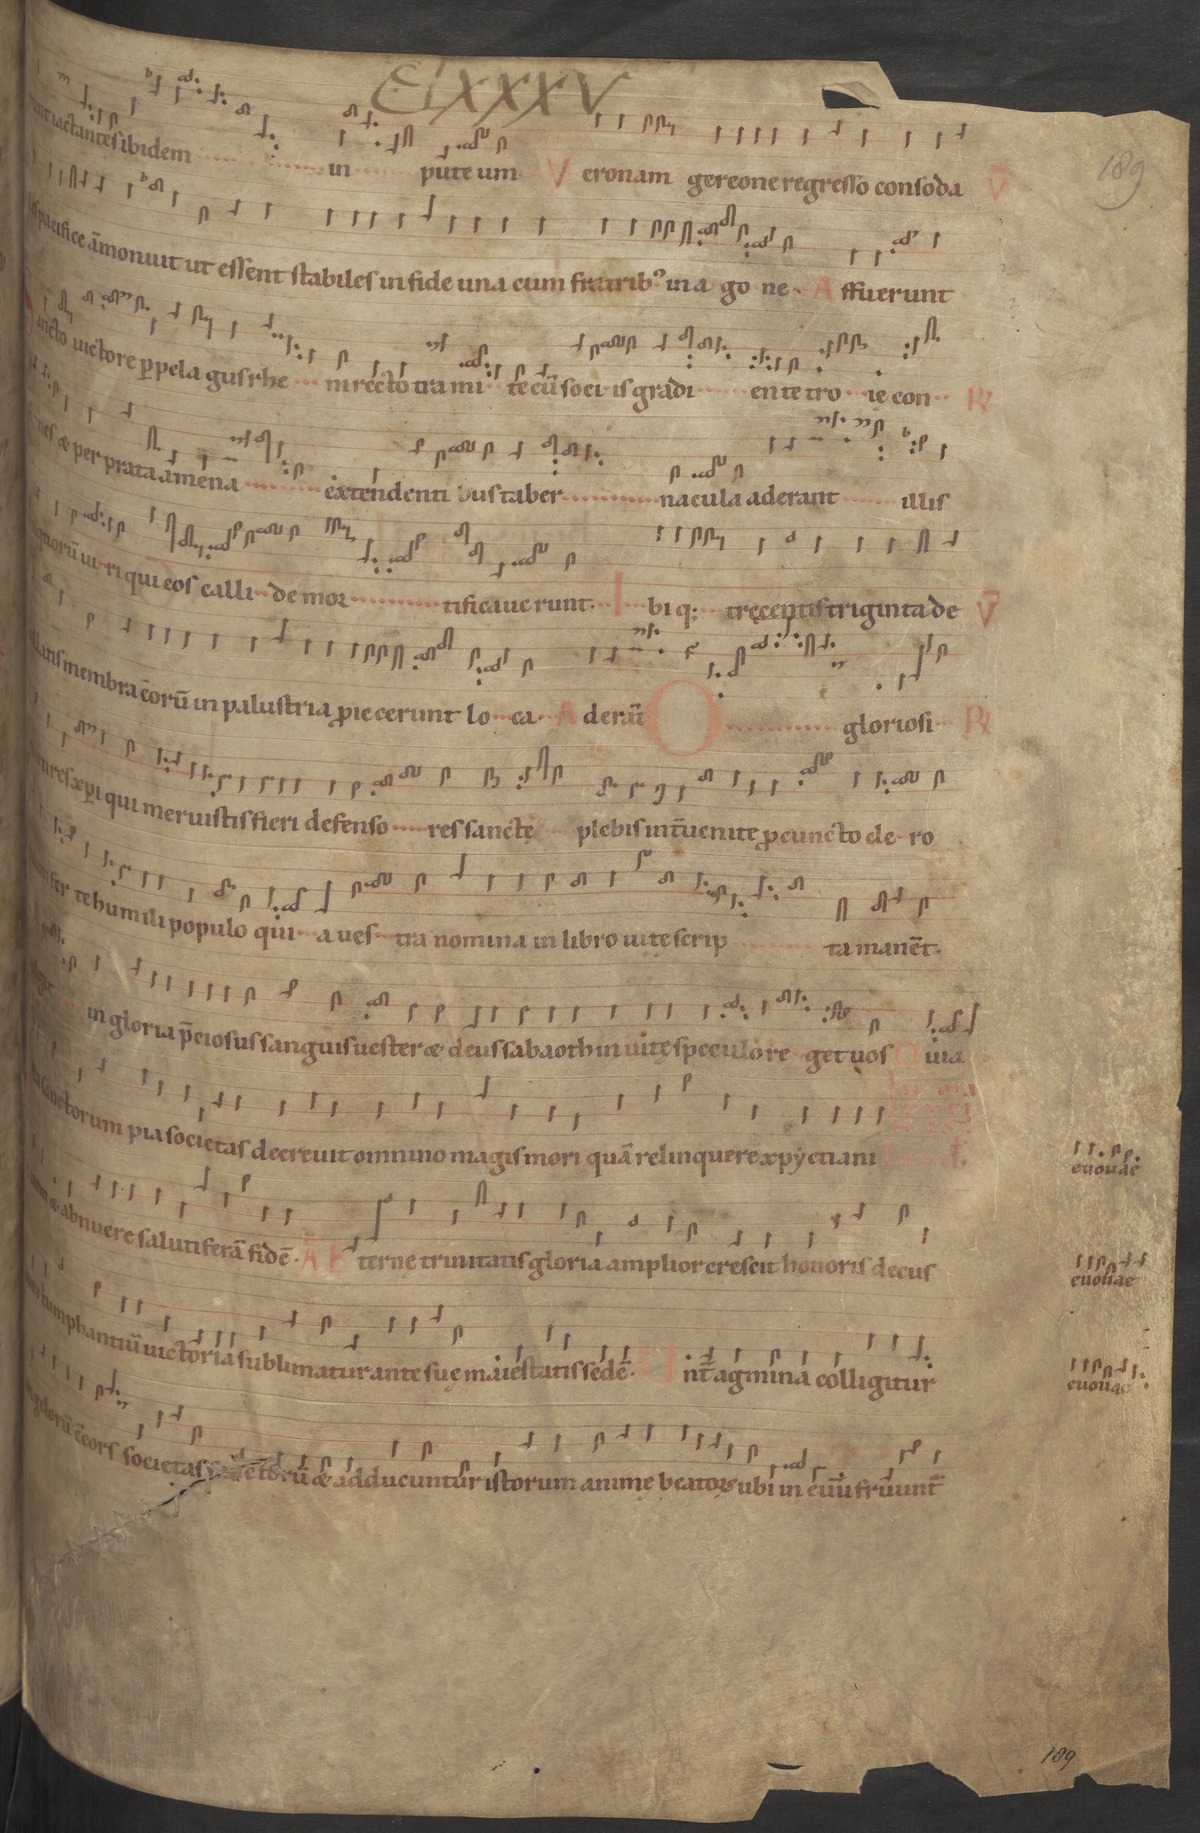 ClXXXV
189
iactantes ibidem in puteum V eronam gereone regresso con soda V̄
pacifice āmonuit ut essent stabiles in fide una cum fratribꝰ in a go ne. A ffuerunt
ancto uictore ꝑ pelagus rhe ni recto tra mi te cū soci is gradi ente tro ie con R
nes & per prata amena extendenti bus taber nacula aderant illis
quorū ui ri qui eos calli de mor tificaue runt. I bi q; trecentis triginta de V̄
membra eorū in palustria proiecerunt lo ca. A derāt O gloriosi R
qui meruistis fieri defenso res sancte plebis int̄uenite pro cuncto cle ro
te humili populo qui a ues tra nomina in libro uitę scrip ta manēt.
in gloria p̄ciosus sanguis uester & deus sabaoth in uitę speculo re get uos Q uia
sanctorum pia societas decreuit omnino magis mori quā relinquere xp̄ictiani
euouae
abnuere salutiferā fidē. A E terne trinitatis gloria amplior crescit honoris decus
euouae
tumphantiū uictoria sublimatur ante suę maiestatis sedē. I nt̄ agmina colligitur
euouae
angelorū c̄cors societas sanctorū & adducuntur istorum anime beatorꝝ ubi in euū fruunt̄
189